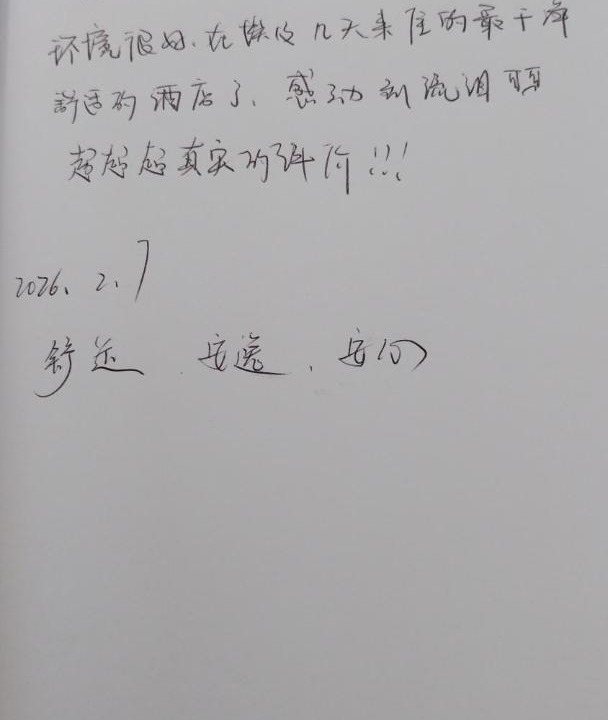 环境很好.在埃及几天来住的最干净
舒适的酒店了、感动到流泪
超超超真实的评价!!!
2026.2.7
舒适 安逸.安